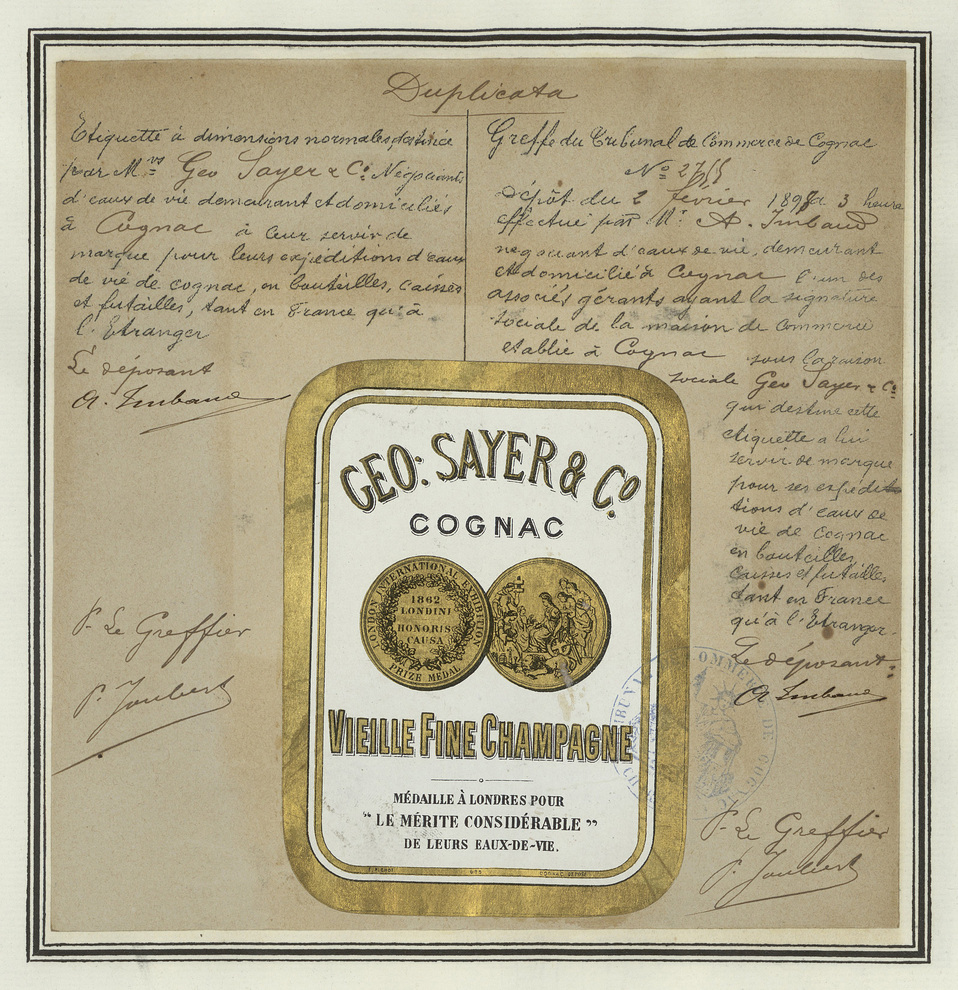 Duplicata
Etiquette à dimensions normales destinée
par M.rs Geo Sayer & Co: Négociants
d'eaux de vie demeurant et domiciliés
à Cognac à leur servir de
marque pour leurs expéditions d'eaux
de vie de cognac, en bouteilles, caisses
et futailles, tant en France qu'à
l'Etranger
Le déposant
A. Imbaud
P. Le Greffier
P. Joubert
Greffe du Tribunal de Commerce de Cognac
No 2755
Dépôt du 2 février 1898 à 3 heures
effectué par Mr A. Imbaud
négociant d'eaux de vie, demeurant
et domicilié à Cognac l'un des
associés gérants ayant la signature
sociale de la maison de commerce
établie à Cognac sous la raison
sociale Geo Sayer & Co:
qui destine cette
étiquette a lui
servir de marque
pour ses expédi
tions d'eaux de
vie de Cognac
en bouteilles,
caisses et futailles,
tant en France
qu'à l'Etranger.
Le déposant
A. Imbaud
P. Le Greffier
P. Joubert
GEO: SAYER & Co.
COGNAC
LONDON INTERNATIONAL EXHIBITION
1862
LONDINI
HONORIS
CAUSA
PRIZE MEDAL
VIEILLE FINE CHAMPAGNE
MÉDAILLE À LONDRES POUR
“ LE MÉRITE CONSIDÉRABLE ”
DE LEURS EAUX-DE-VIE.
COMMERCE DE COGNAC